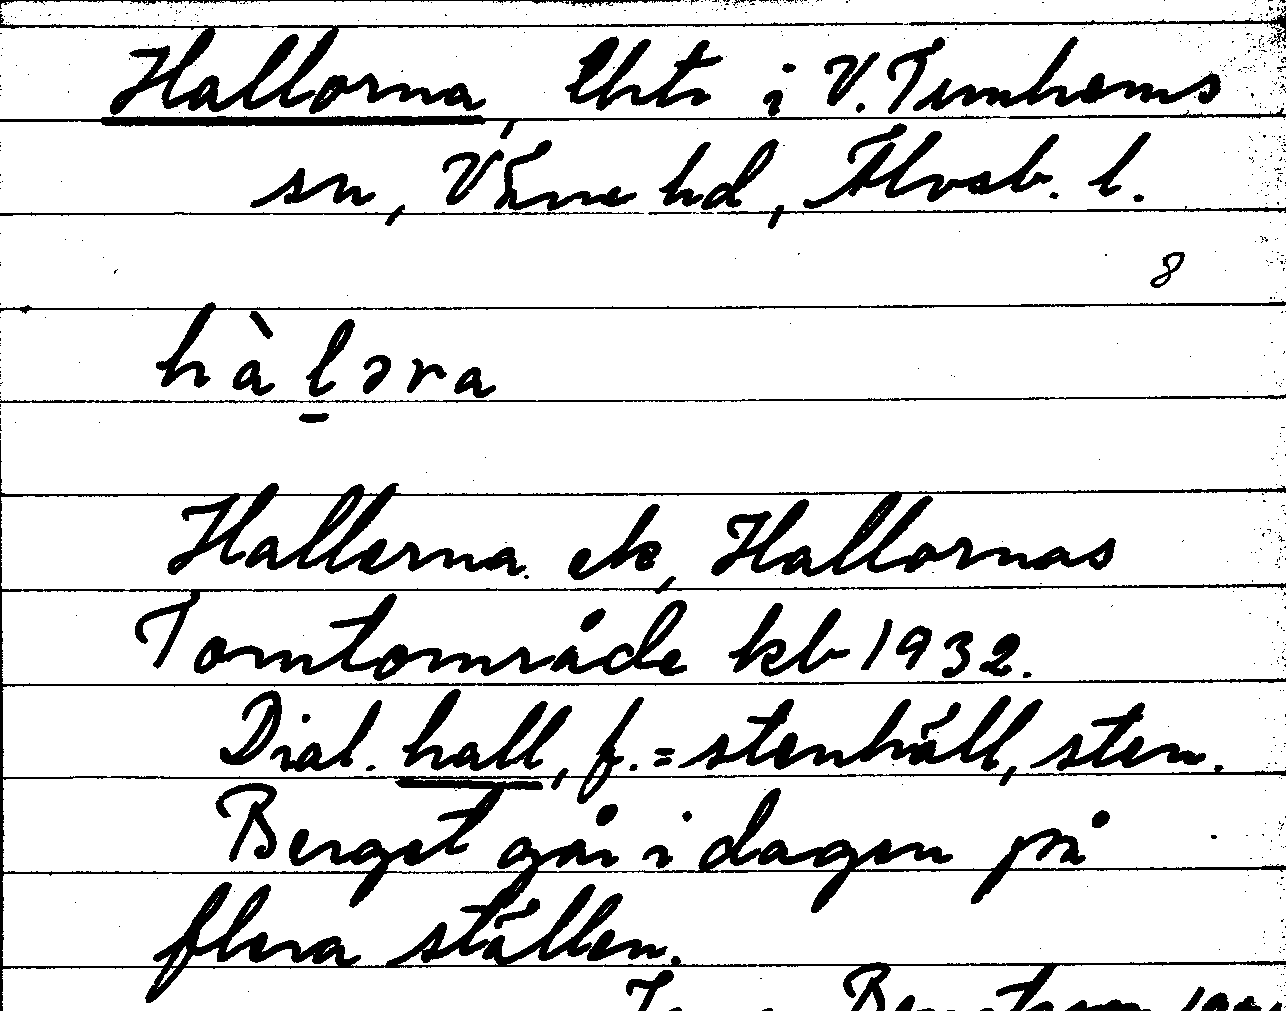 Hallorna, lht i V. Tunhems
sn, Väne hd, Älvsb. l.
8
hàl̠ɔra
Hallerna ek, Hallornas
Tomtområde kb 1932.
Dial. hall, f. = stenhäll, sten.
Berget går i dagen på
flera ställen.